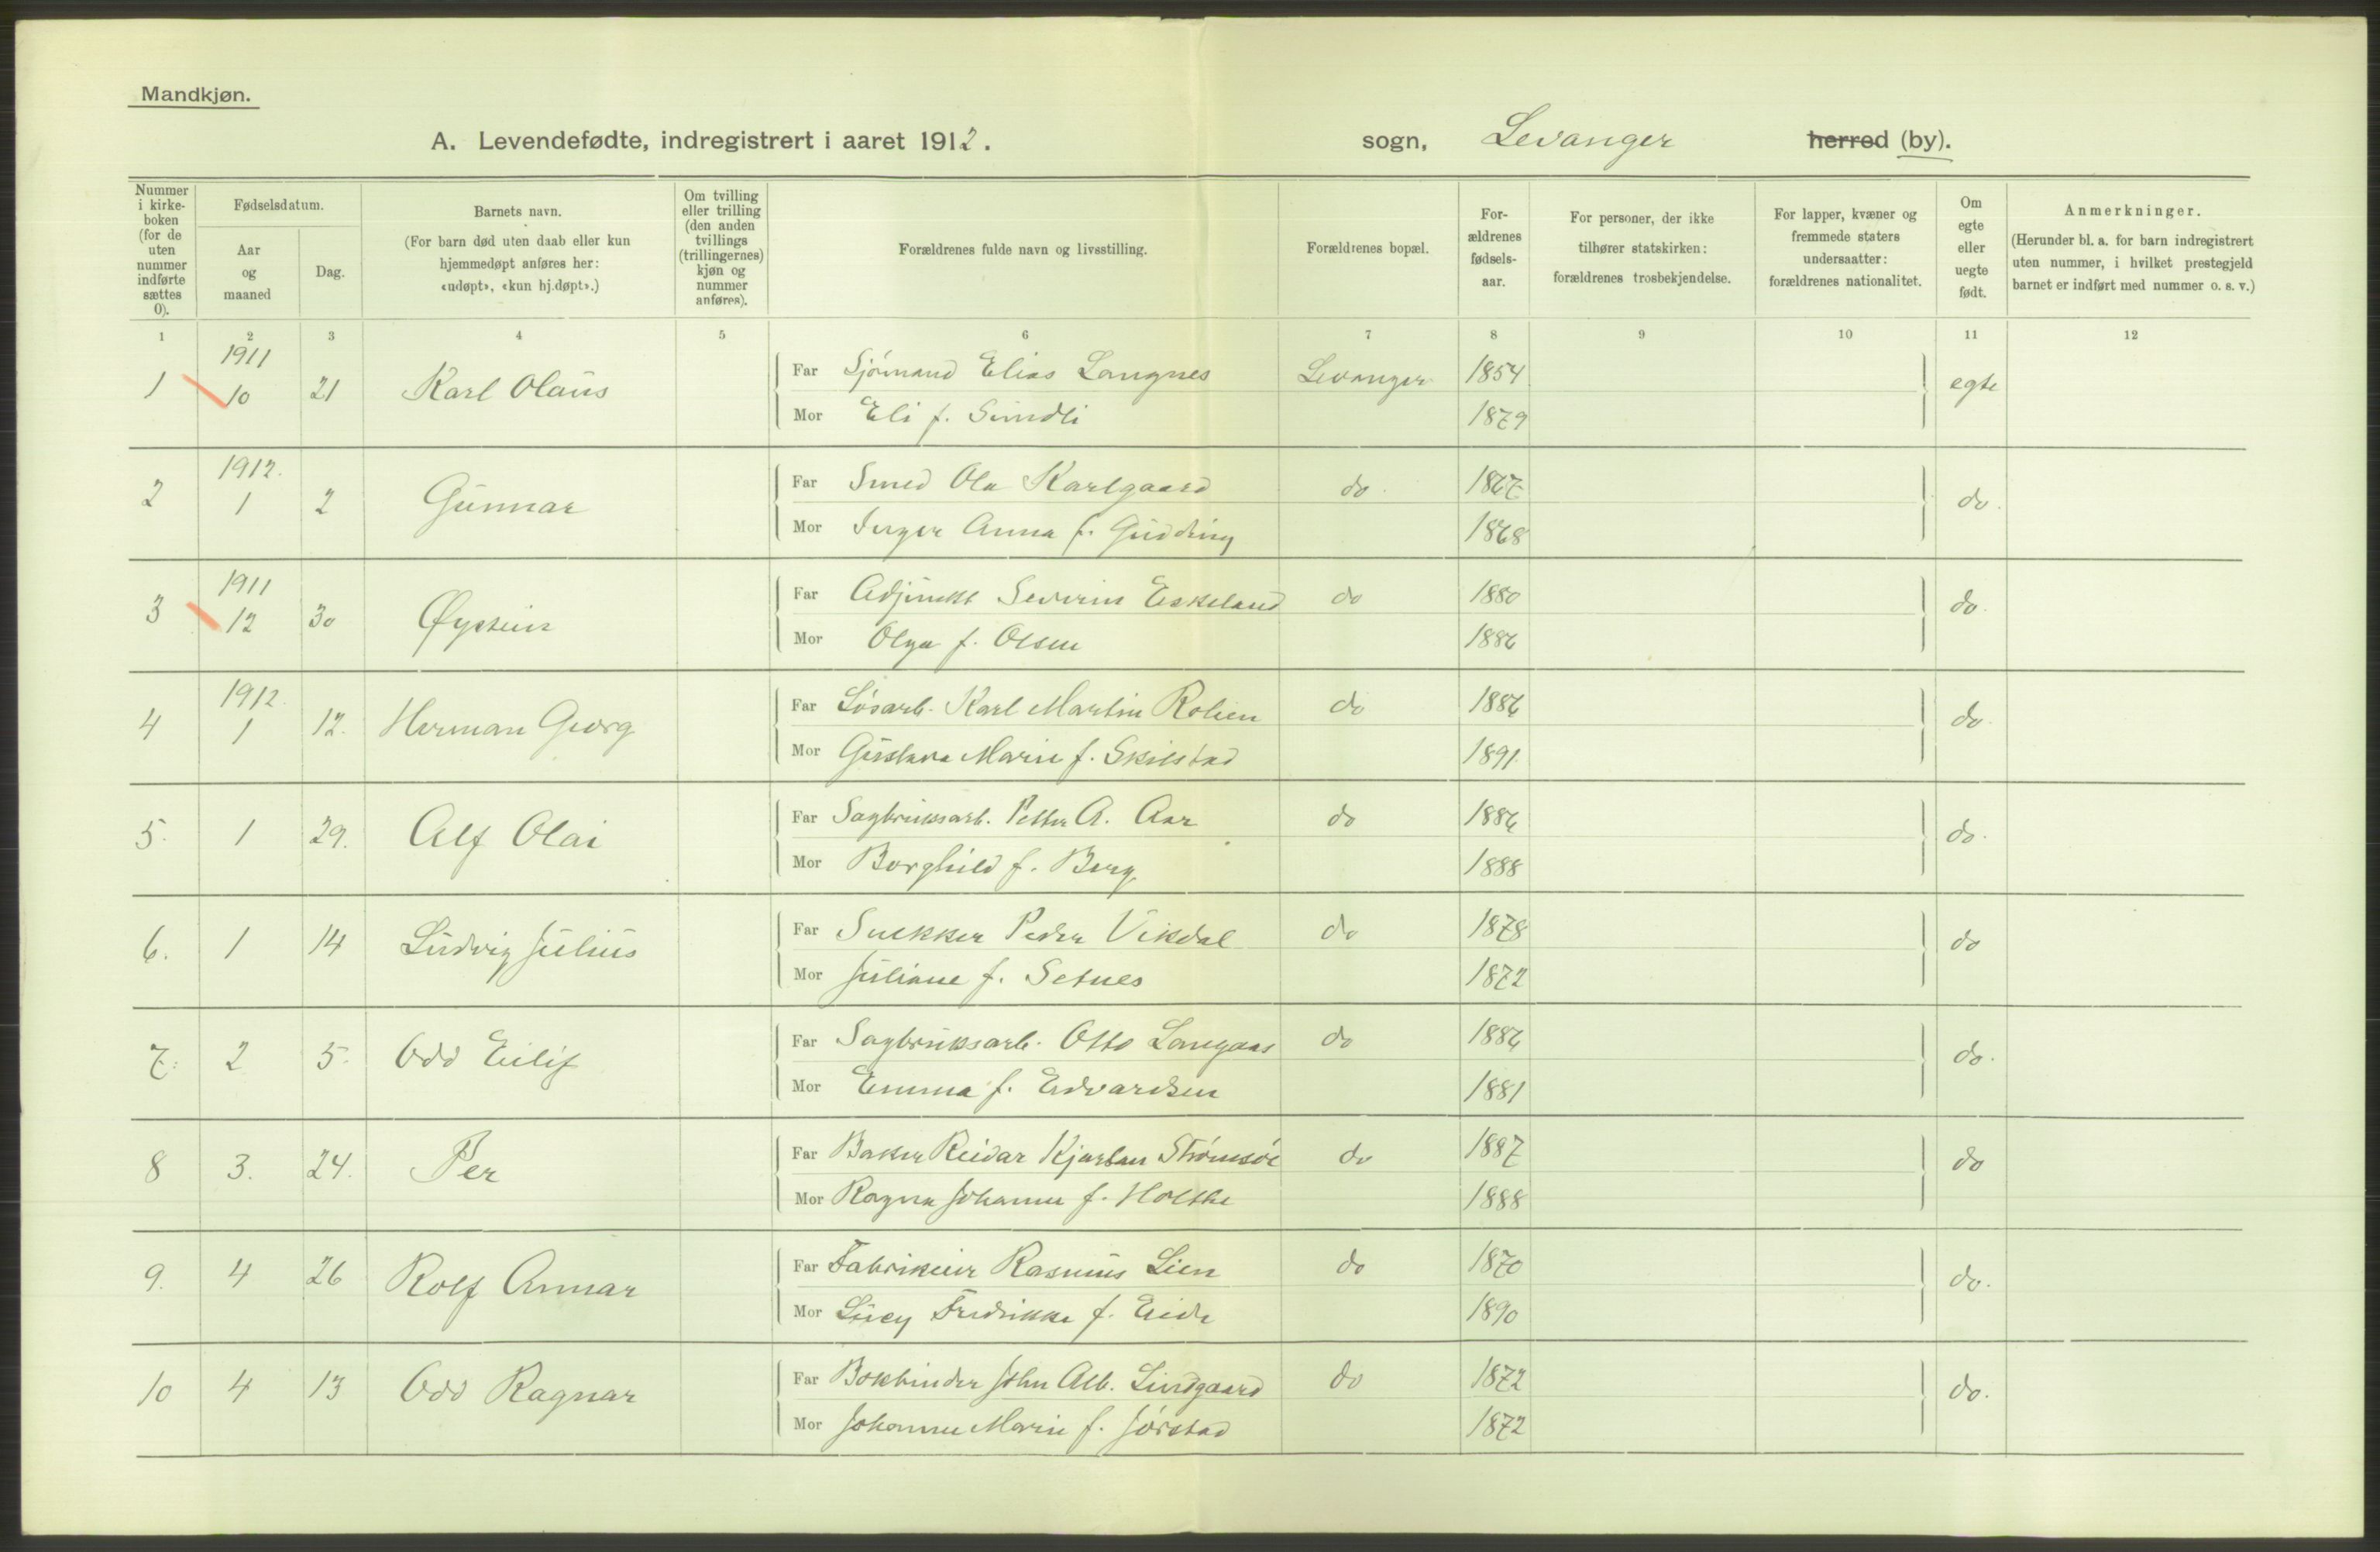 Mandkjøn.
A. Levendefødte, indregistrert i aaret 1912. sogn, Levanger herred (by).
Nummer i kirkeboken (for de uten nummer indførte sættes 0).
Fødselsdatum.
Aar og maaned
Dag.
Barnets navn.
(For barn død uten daab eller kun hjemmedøpt anføres her: «udøpt», «kun hj.døpt».)
Om tvilling eller trilling (den anden tvillings (trillingernes) kjøn og nummer anføres).
Forældrenes fulde navn og livsstilling.
Forældrenes bopæl.
Forældrenes fødselsaar.
For personer, der ikke tilhører statskirken: forældrenes trosbekjendelse.
For lapper, kvæner og fremmede staters undersaatter: forældrenes nationalitet.
Om egte eller uegte født.
Anmerkninger.
(Herunder bl. a. for barn indregistrert uten nummer, i hvilket prestegjeld barnet er indført med nummer o. s. v.)
1 2 3 4 5 6 7 8 9 10 11 12
1911
1 10 21 Karl Olaus Far Sjømand Elias Langnes Levanger 1854 egte
Mor Eli f. Sundli 1879
1912.
2 1 2 Gunnar Far Smed Ola Karlgaard do. 1867 do.
Mor Inger Anna f. Gudding 1868
1911
3 12 30 Øystein Far Adjunkt Severin Eskeland do 1880 do.
Mor Olga f. Olsen 1886
1912.
4 1 12. Herman Georg Far Løsarb. Karl Martin Rolien do 1886 do.
Mor Gustava Marie f. Skilstad 1891.
5. 1 29. Alf Olai Far Sagbruksarb. Petter A. Aar do 1886 do.
Mor Borghild f. Berg 1888
6. 1 14 Ludvig Julius Far Snekker Peder Vikdal do 1878 do
Mor Juliane f. Setnes 1872
7. 2 5. Odd Eilif Far Sagbruksarb. Otto Langaas do 1886 do.
Mor Emma f. Edvardsen 1881
8 3. 24. Per Far Baker Reidar Kjartan Strømsøe do 1887 do
Mor Ragna Johanne f. Holthe 1888
9. 4 26 Rolf Annar Far Fabrikeier Rasmus Lien do 1870 do.
Mor Lucy Fredrikke f. Eide 1890
10 4 13 Odd Ragnar Far Bokbinder John Alb. Lindgaard do 1872 do.
Mor Johanne Marie f. Jørstad 1872